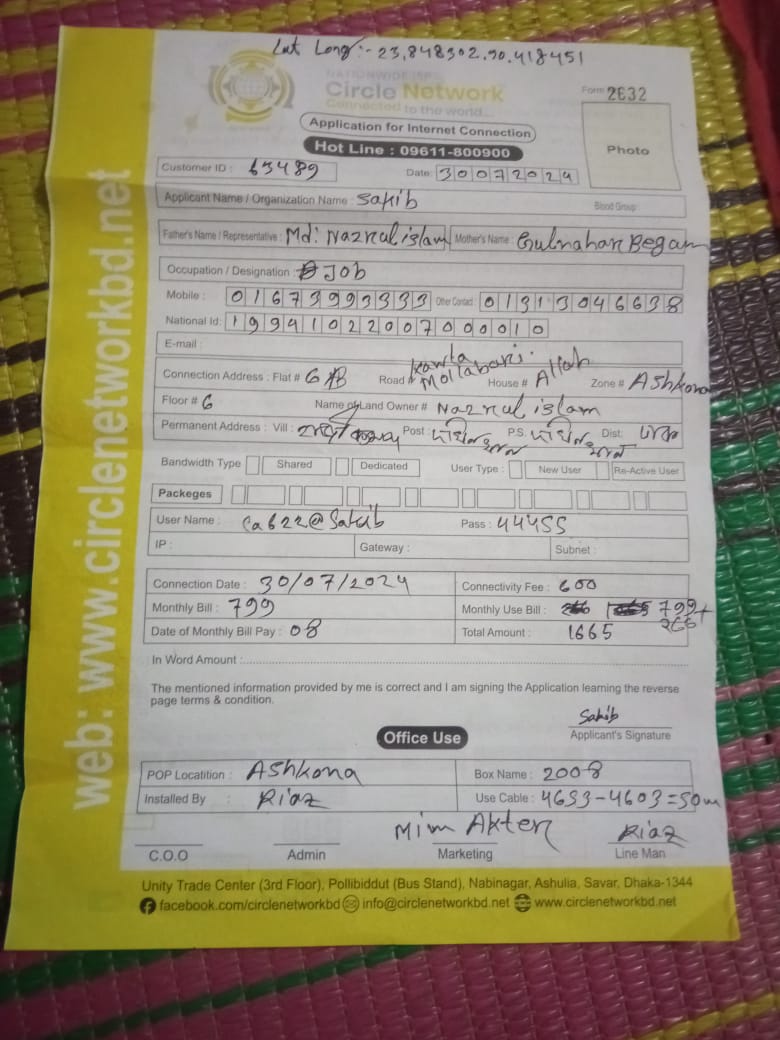 Lat Long:- 23,848302,90,418451
NATIONWIDE ISP
Circle Network
Connected to the world...
Form 2632
Photo
Application for Internet Connection
Hot Line : 09611-800900
Customer ID : 63489
Date: 30072024
Applicant Name / Organization Name : Sakib
Blood Group
Father's Name / Representative : Md: Nazrul islam Mother's Name : Gulnahan Begam
Occupation / Designation : Job
Mobile : 01673993333 Other Contact : 01313046638
National Id: 19941022007000010
E-mail :
Connection Address : Flat # 6 B Road # Kawla Mollabari. House # Allah Zone # Ashkona
Floor # 6 Name of Land Owner # Nazrul islam
Permanent Address : Vill : Post : P.S. Dist: ঢাকা
Bandwidth Type Shared Dedicated User Type : New User Re-Active User
Packeges
User Name : Ca622@Sakib Pass : 44455
IP : Gateway : Subnet :
Connection Date : 30/07/2024 Connectivity Fee : 600
Monthly Bill : 799 Monthly Use Bill : 799+
266
Date of Monthly Bill Pay : 08 Total Amount : 1665
In Word Amount :
The mentioned information provided by me is correct and I am signing the Application learning the reverse
page terms & condition.
Sakib
Applicant's Signature
Office Use
POP Locatition : Ashkona Box Name : 2008
Installed By : Riaz Use Cable : 4653-4603=50m
Mim Akter Riaz
C.O.O Admin Marketing Line Man
Unity Trade Center (3rd Floor), Pollibiddut (Bus Stand), Nabinagar, Ashulia, Savar, Dhaka-1344
facebook.com/circlenetworkbd info@circlenetworkbd.net www.circlenetworkbd.net
web: www.circlenetworkbd.net